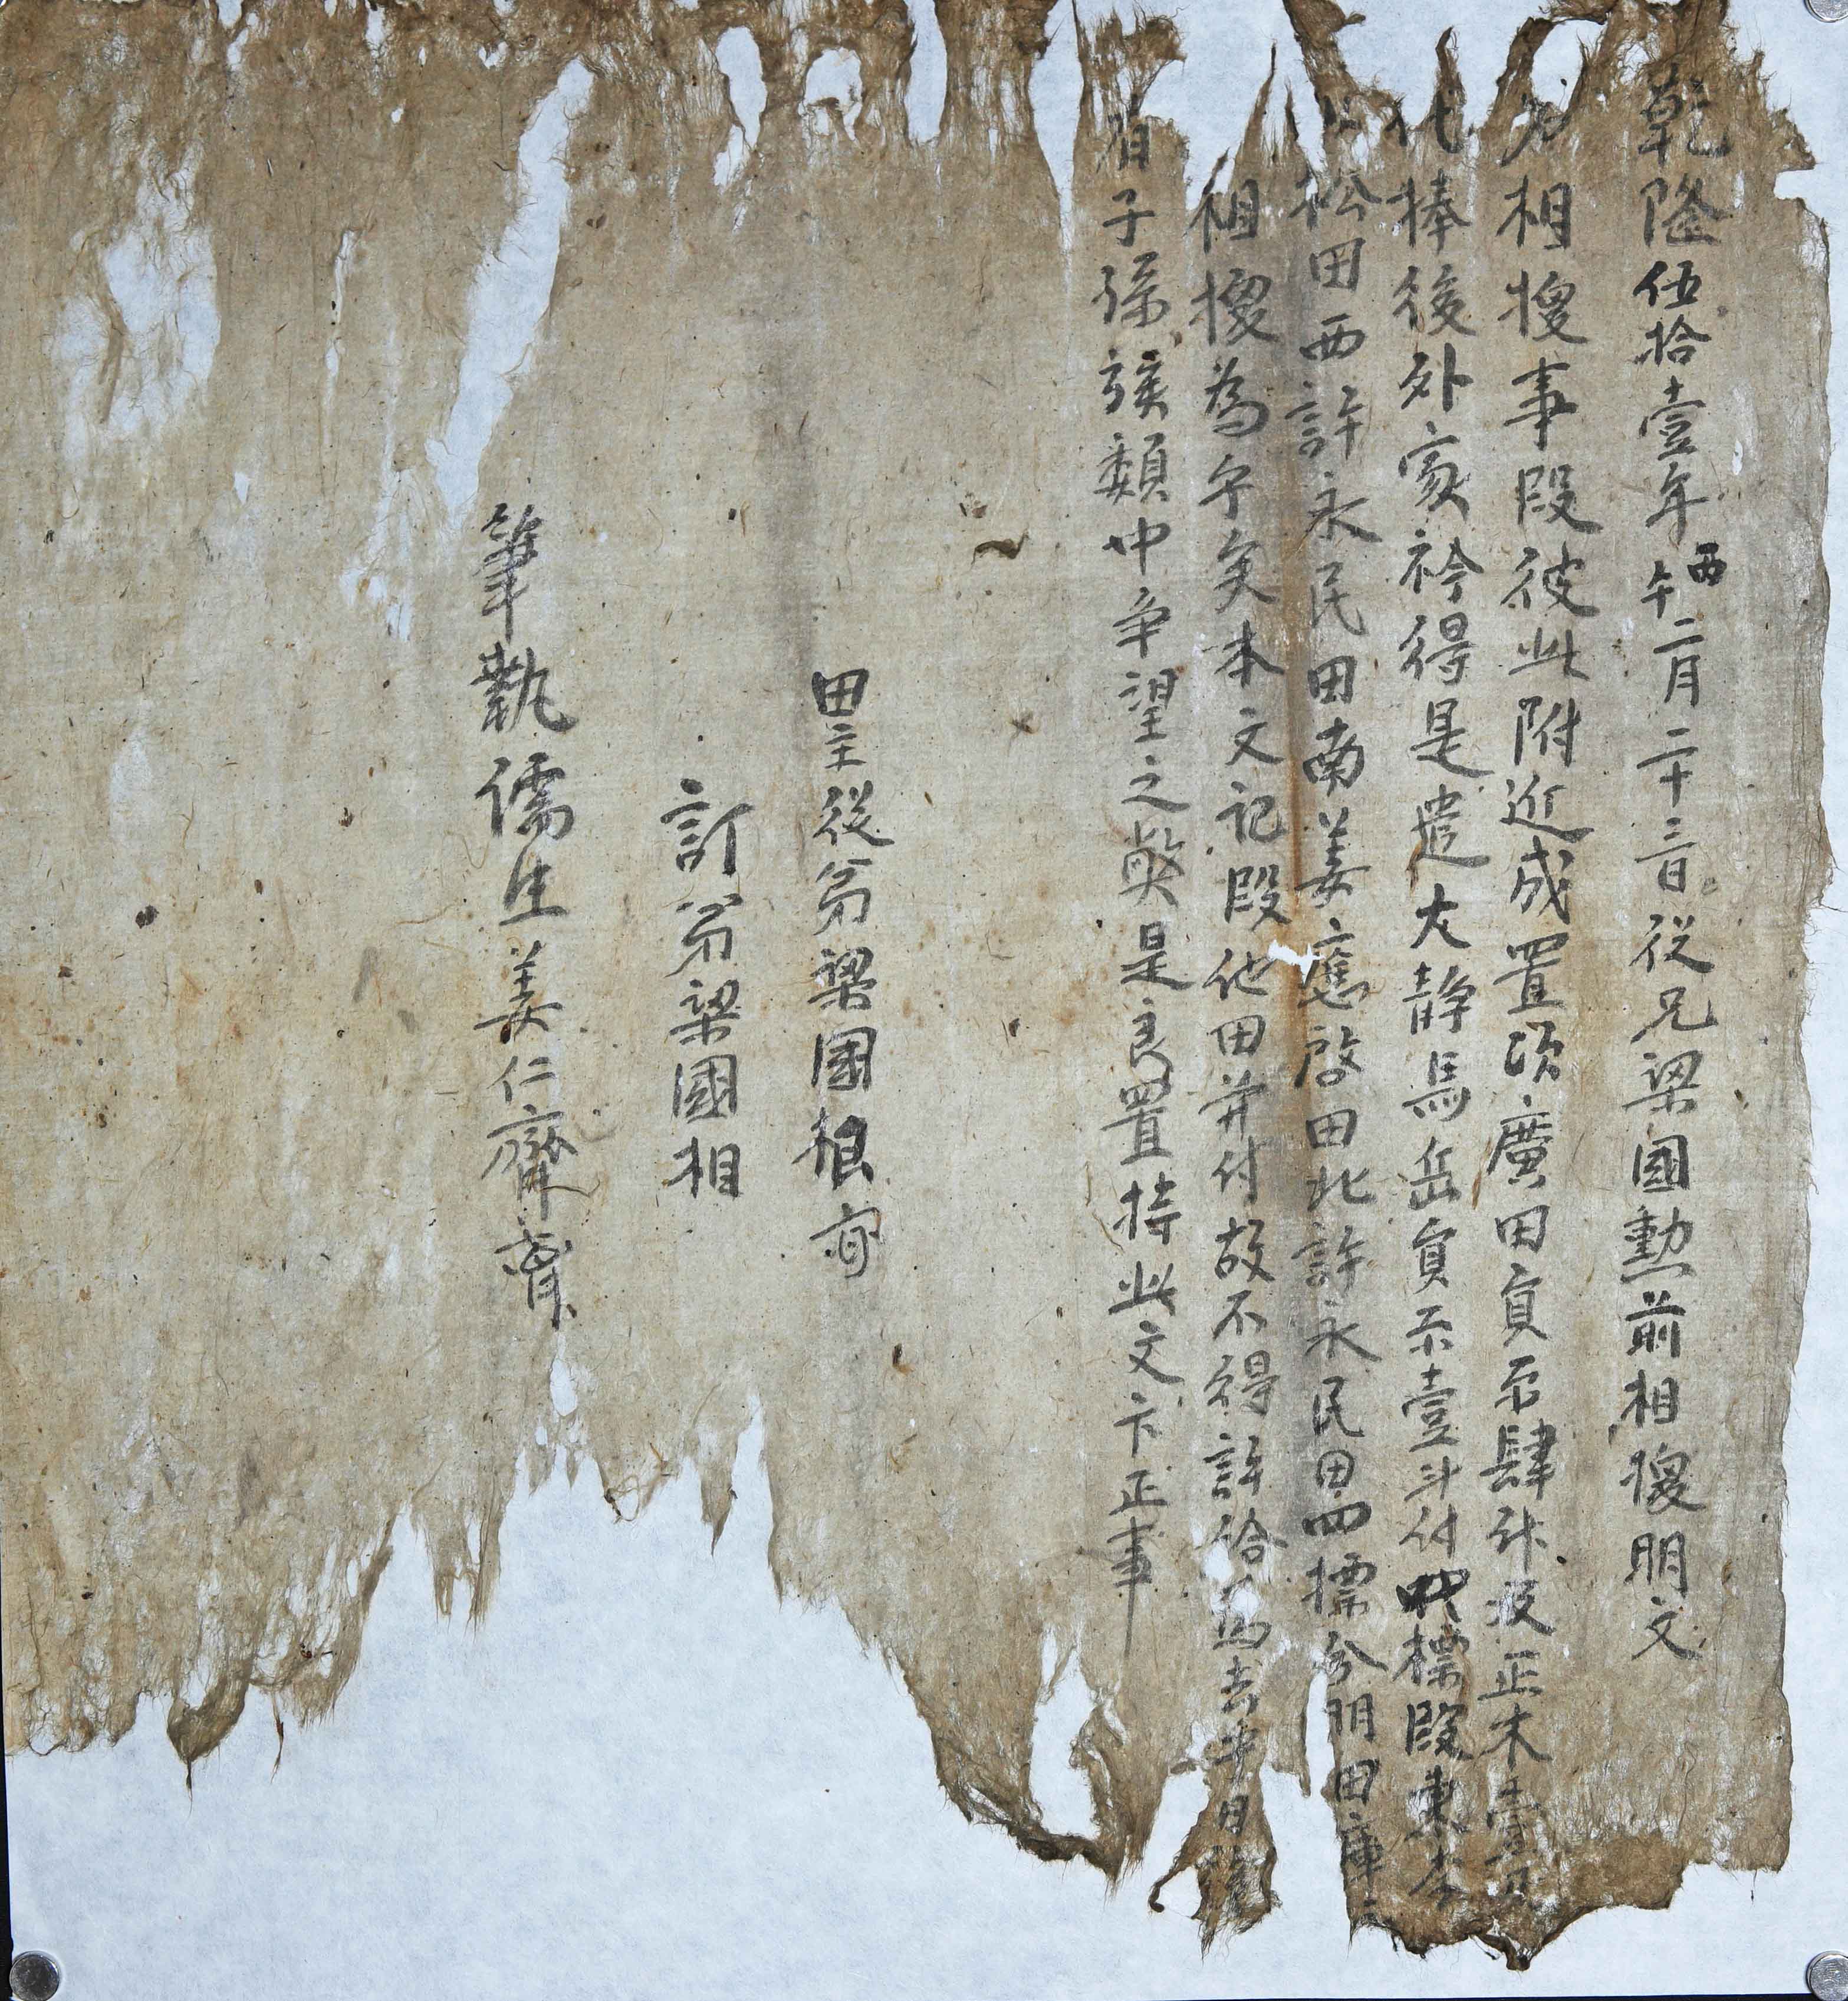 乾隆伍拾壹年丙午二月二十三日從兄梁國勳前相換明文
相換事段彼此附近成置次廣田員㐃肆卦及正木壹疋
代捧後外家衿得是遣大靜馬岳員㐃壹斗付只標段東
松田西許永民田南姜應啓田北許永民田四標分明田庫
相換爲乎矣本文記段他田幷付故不得許給爲去乎日後
有子孫族類中爭望之弊是良置持此文卞正事
田主從弟梁國根
訂弟梁國相
筆執儒生姜仁齊